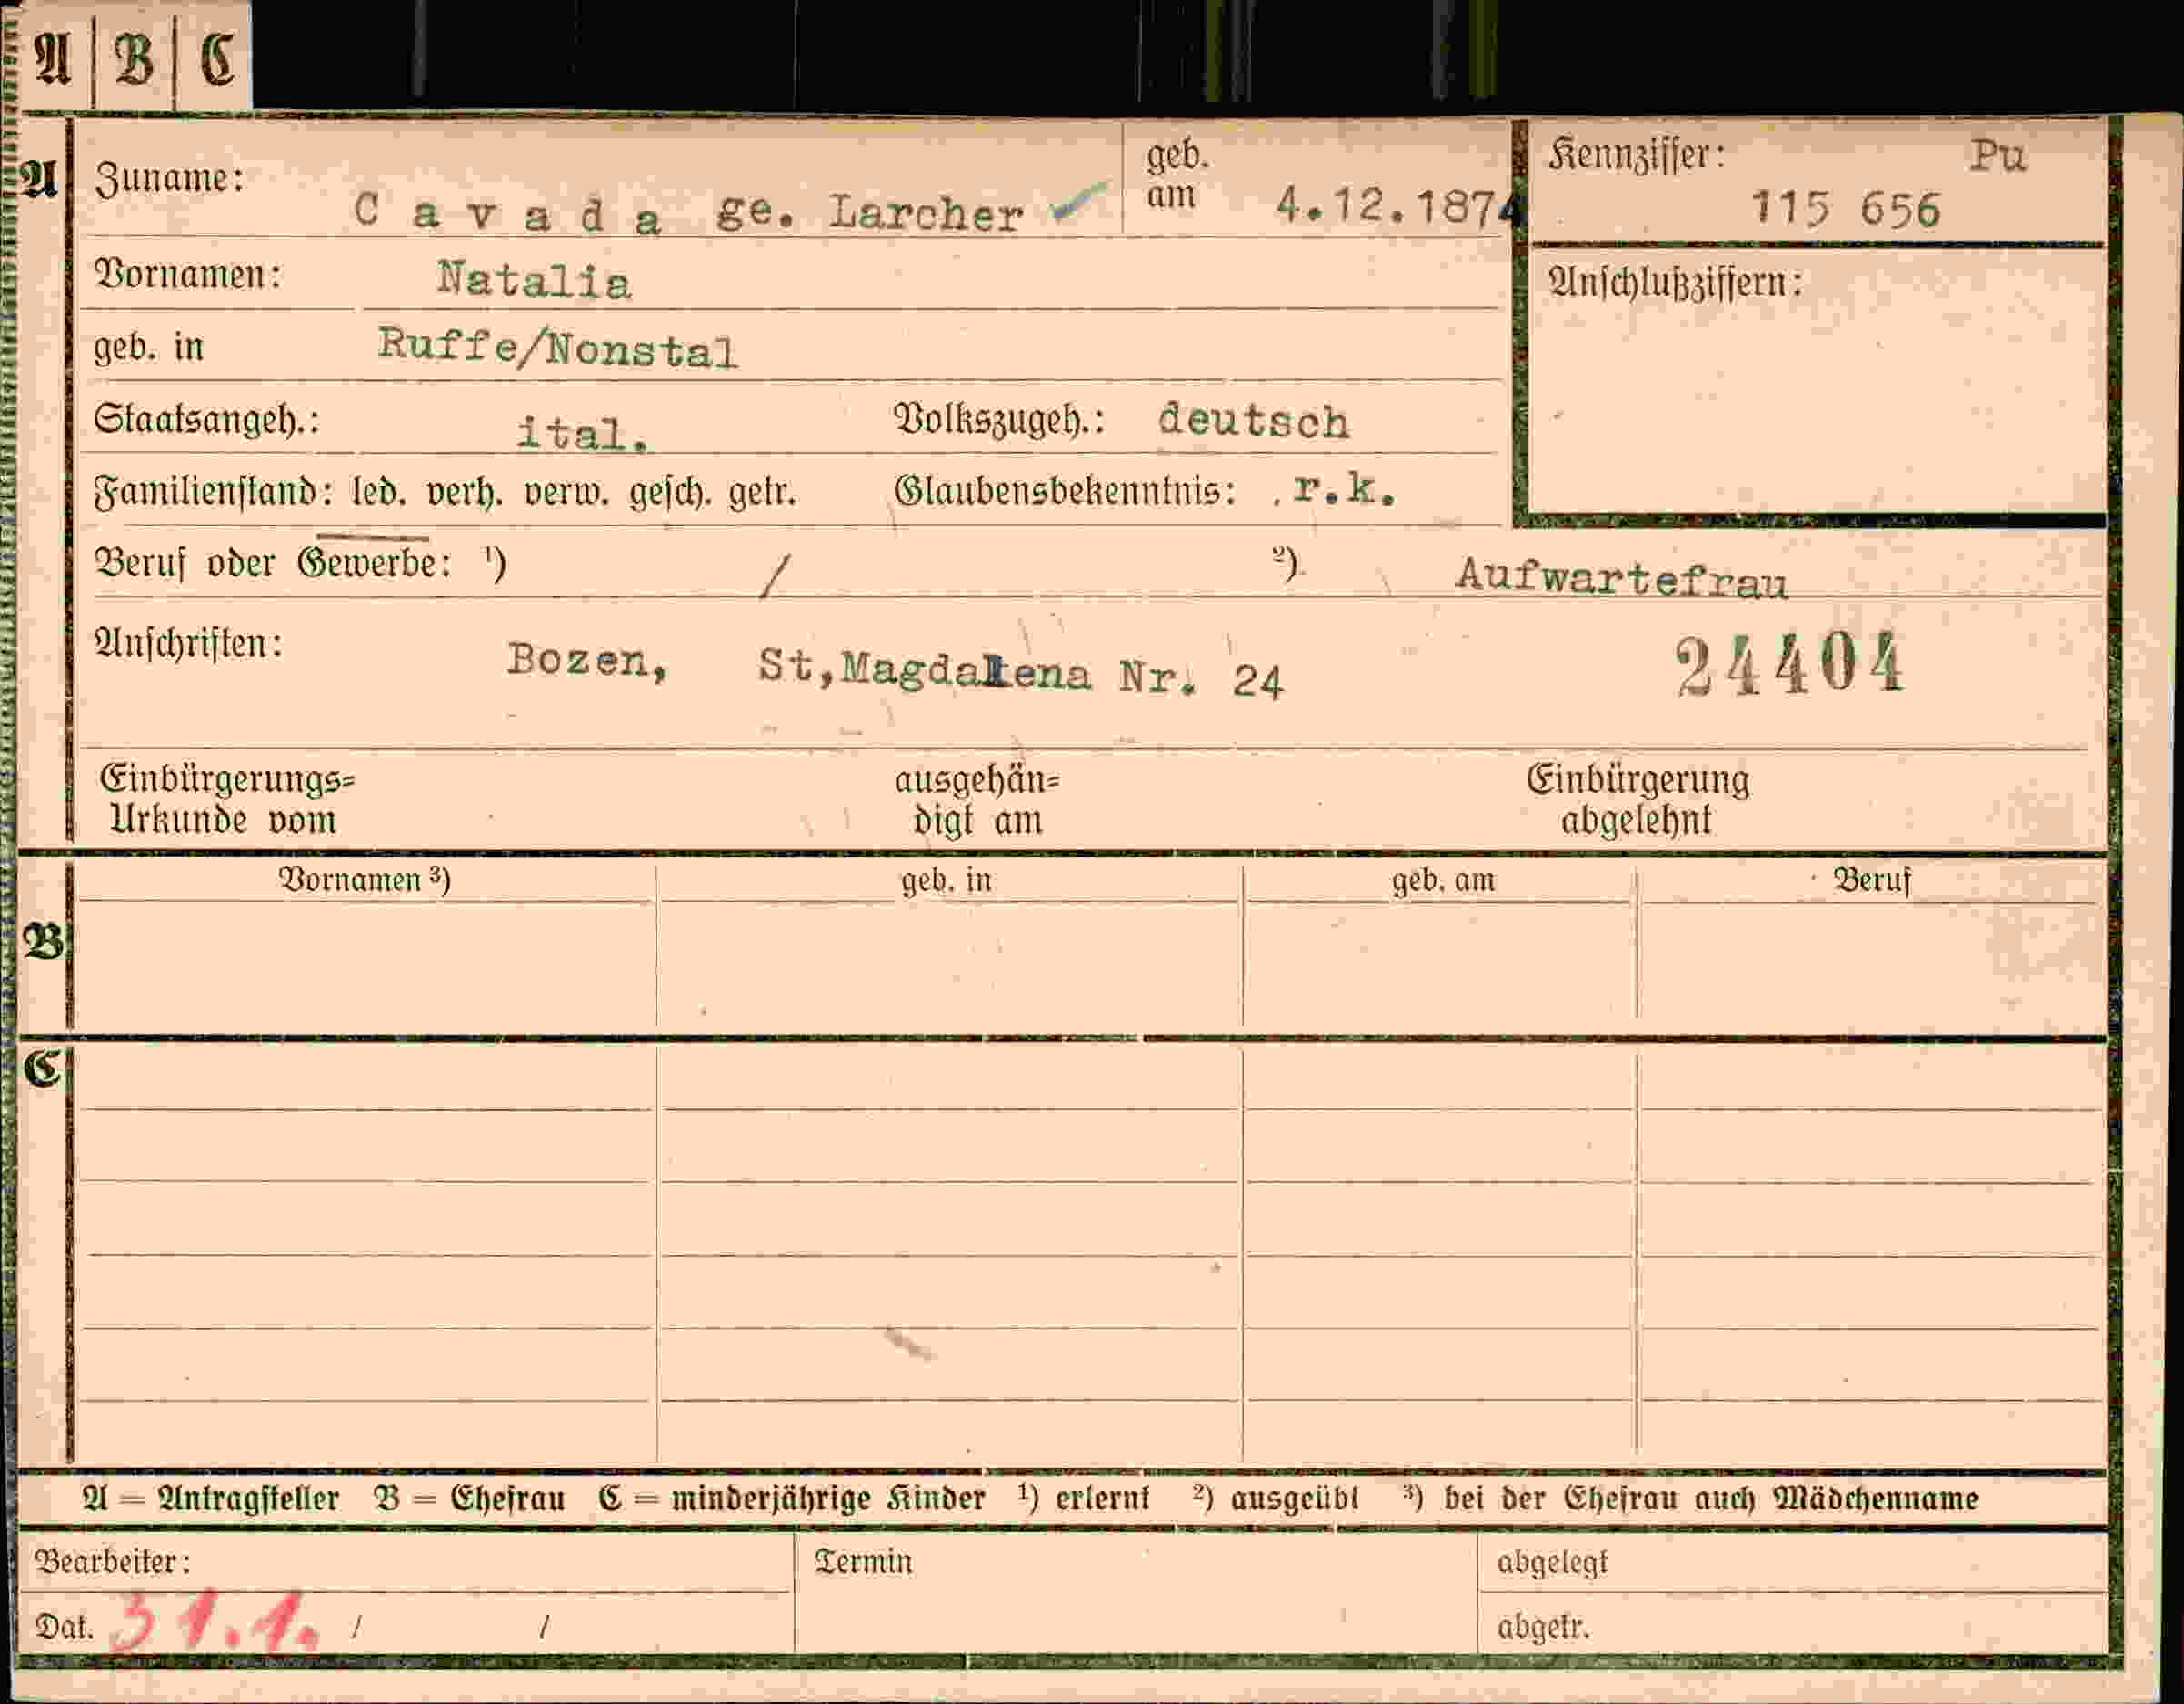 A | B | C
A Zuname: Cavada ge. Larcher ✓ geb. am 4.12.1874 Kennziffer: Pu 115 656
Vornamen: Natalia Anschlußziffern:
geb. in Ruffe/Nonstal
Staatsangeh.: ital. Volkszugeh.: deutsch
Familienstand: led. verh. verw. gesch. getr. Glaubensbekenntnis: r.k.
Beruf oder Gewerbe: ¹) / ²) Aufwartefrau
Anschriften: Bozen, St,Magdalena Nr. 24 24404
Einbürgerungs= ausgehän= Einbürgerung
Urkunde vom digt am abgelehnt
Vornamen ³) geb. in geb. am Beruf
B
C
A = Antragsteller B = Ehefrau C = minderjährige Kinder ¹) erlernt ²) ausgeübt ³) bei der Ehefrau auch Mädchenname
Bearbeiter: Termin abgelegt
Dat. 31.1. / / abgetr.